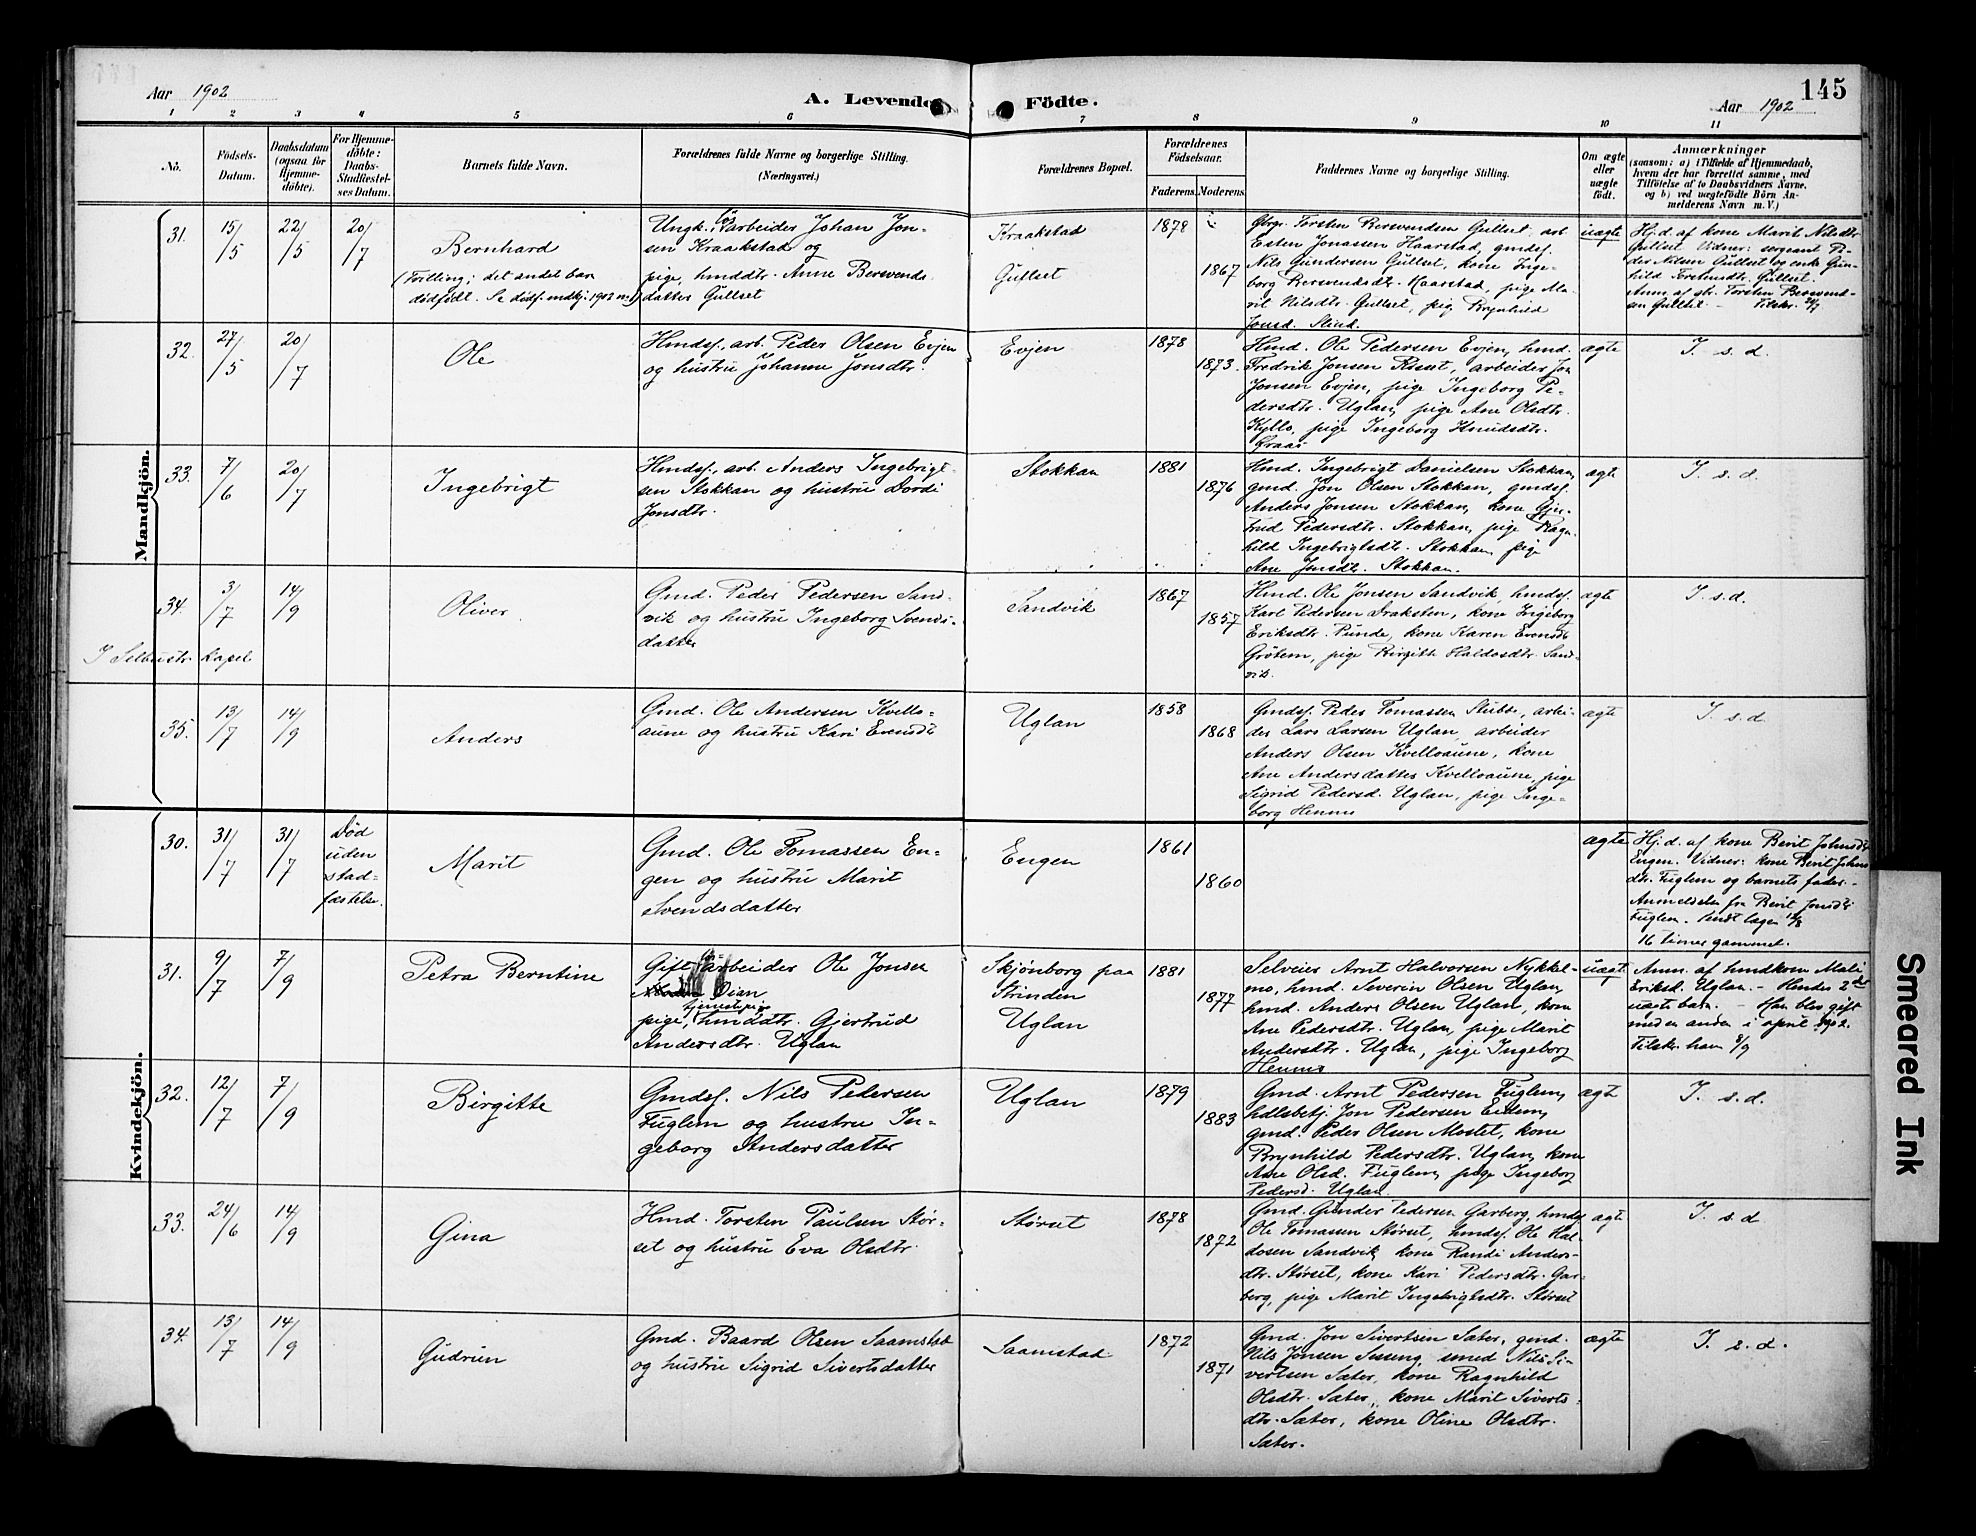 Aar 1902
A. Levende Födte.
Aar 1902
145
1 2 3 4 5 6 7 8 9 10 11
No.
Födsels-
Datum.
Daabsdatum
(ogsaa for
Hjemme-
döbte).
For Hjemme-
döbte:
Daabs-
Stadfæstel-
ses Datum.
Barnets fulde Navn.
Forældrenes fulde Navne og borgerlige Stilling.
(Næringsvei.)
Forældrenes Bopæl.
Forældrenes
Födselsaar.
Faderens.
Moderens.
Faddernes Navne og borgerlige Stilling.
Om ægte
eller
uægte
födt.
Anmærkninger
(saasom: a) i Tilfælde af Hjemmedaab,
hvem der har forrettet samme, med
Tilföielse af to Daabsvidners Navne,
og b) ved uægtefödte Börn An-
melderens Navn m. V.)
Mandkjön.
31.
15/5
22/5
20/7
Bernhard
(Tvilling; det andet barn
dödfödt. Se dödf. mdkj. 1902 no 1)
Ungk., løsarbeider Johan Jon-
sen Kraakstad og
pige, hmddtr. Anne Bersvends-
datter Gullset
Kraakstad
Gullset
1878
1867
Gbrgr. Torsten Bersvendsen Gullset, arb.
Esten Jonassen Haarstad, gmdsf.
Nils Gundersen Gullset, kone Inge-
borg Bersvendsdtr. Haarstad, pige Ma-
rit Nilsdtr. Gullset, pig. Brynhild
Jonsd. Slind.
uægte
Hj.d. af kone Marit Nilsdtr.
Gullset. Vidner: sergeant Pe-
der Nilsen Gullset og enke Gun-
hild Torstensdtr. Gullset.
Anm. af gb. Torsten Bersvend-
sen Gullset. – Tilskr.
32.
27/5
20/7
Ole
Hmdsf., arb. Peder Olsen Evjen
og hustru Johanne Jonsdtr.
Evjen
1878
1873.
Hmd. Ole Pedersen Evjen, hmd.
Fredrik Jonsen Röset, arbeider Jon
Jonsen Evjen, pige Ingeborg Pe-
dersdtr. Uglan, pige Ane Olsdtr.
Kyllo, pige Ingeborg Knudsdtr.
Kraas
ægte
I. s. d.
33.
7/6
20/7
Ingebrigt
Hmdsf., arb. Anders Ingebrigt-
sen Stokkan og hustru Dordi
Jonsdtr.
Stokkan
1881
1876
Hmd. Ingebrigt Danielsen Stokkan,
gmd. Jon Olsen Stokkan, gmdsf.
Anders Jonsen Stokkan, kone Gjer-
trud Pedersdtr. Stokkan, pige Ragn-
hild Ingebrigtsdtr. Stokkan, pige
Ane Jonsdtr. Stokkan.
ægte
I. s. d.
34.
3/7
14/9
I Selbustr. kapel
Oliver
Gmd. Peder Pedersen Sand-
vik og hustru Ingeborg Svends-
datter
Sandvik
1867
1857
Hmd. Ole Jonsen Sandvik, hmdsf.
Karl Pedersen Draksten, kone Ingeborg
Eriksdtr. Punde, kone Karen Evensdtr
Grötem, pige Birgitte Haldosdtr. Sand-
vik.
ægte
I. s. d.
35.
13/7
14/9
Anders
Gmd. Ole Andersen Kvello-
aune og hustru Kari Evensdtr
Uglan
1858
1868
Gmdsf. Peder Tomassen Stubbe, arbei-
der Lars Larsen Uglan, arbeider
Anders Olsen Kvelloaune, kone
Ane Andersdatter Kvelloaune, pige
Sigrid Pedersd. Uglan, pige Inge-
borg Hemmo
ægte
I. s. d.
Kvindekjön.
30.
31/7
31/7
Död
uden
stad-
fæstelse.
Marit
Gmd. Ole Tomassen En-
gen og hustru Marit
Svendsdatter
Engen
1861
1860
ægte
Hj.d. af kone Berit Johnsdtr
Engen. Vidner: kone Berit Johns-
dtr. Fuglem og barnets fader. –
Anmeldelse fra Berit Jonsdtr
Fuglem.
16 timer gammel.
31.
9/7
7/9
Petra Berntine
Gift løsarbeider Ole Jonsen
Øian
pige, tjenestepige hmddtr. Gjertrud
Andersdtr. Uglan
Skjönborg paa
Strinden
Uglan
1881
1877
Selveier Arnt Halvorsen Nykkel-
mo, hmd. Severin Olsen Uglan,
hmd. Anders Olsen Uglan, kone
Ane Pedersdtr. Uglan, pige Marit
Andersdtr. Uglan, pige Ingeborg
Hemmo
uægte
Anm. af hmdkone Mali
Eriksd. Uglan. – Hendes 2det
uægte barn. – Han blev gift
med en anden i april 1902.
Tilskr. ham 8/9
32.
12/7
7/9
Birgitte
Gmdsf. Nils Pedersen
Fuglem og hustru In-
geborg Andersdatter
Uglan
1879
1883
Gmd. Arnt Pedersen Fuglem,
hdlsbetj. Jon Pedersen Eidem,
gmd. Peder Olsen Mostet, kone
Brynhild Pedersdtr. Uglan, kone
Ane Olsd. Fuglem, pige Ingeborg
Pedersd. Uglan
ægte
I. s. d.
33.
24/6
14/9
Gina
Hmd. Torsten Paulsen Stør-
set og hustru Eva Olsdtr.
Størset
1878
1872
Gmd. Gunder Pedersen Garberg, hmdsf.
Ole Tomassen Størset, hmdsf. Ole Hal-
dosen Sandvik, kone Randi Anders-
dtr. Størset, kone Kari Pedersdtr. Gar-
berg, pige Marit Ingebrigtsdtr. Størset
ægte
I. s. d.
34.
13/7
14/9
Gudrun
Gmd. Baard Olsen Saamstad
og hustru Sigrid Sivertsdatter
Saamstad
1872
1871
Gmd. Jon Sivertsen Sæter, gmd.
Nils Jonsen Sesseng, smed Nils Si-
vertsen Sæter, kone Ragnhild
Olsdtr. Sæter, kone Marit Siverts-
dtr. Sæter, kone Oline Olsdtr.
Sæter.
ægte
I. s. d.
Smeared Ink